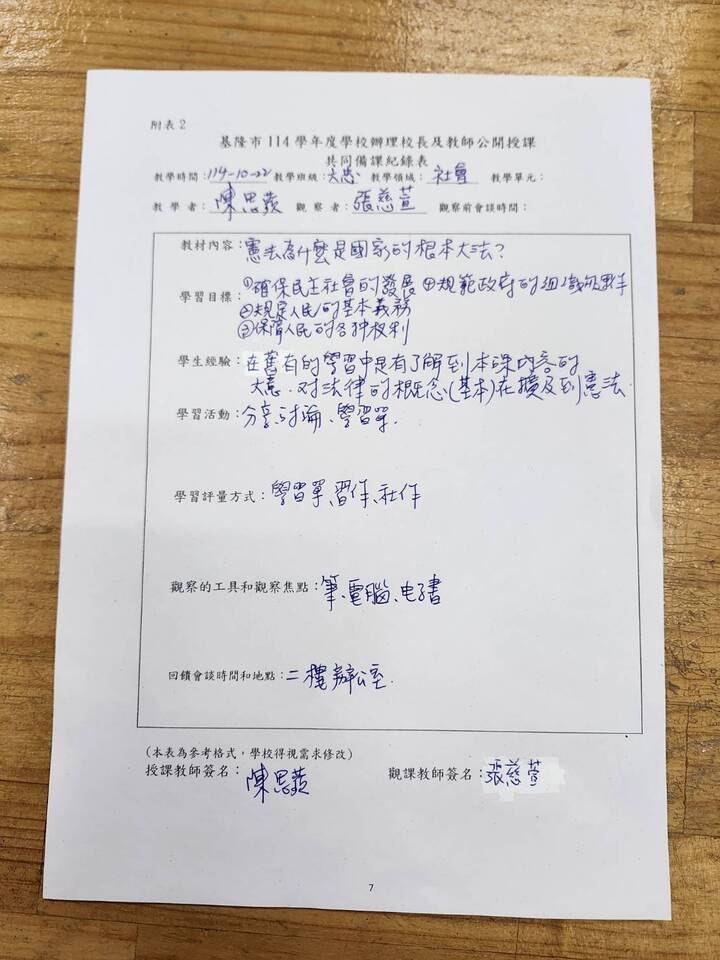 附表2
基隆市 114 學年度學校辦理校長及教師公開授課
共同備課紀錄表
教學時間：114-10-22 教學班級：大忠 教學領域：社會 教學單元：
教學者：陳思薐 觀察者：張慈萱 觀察前會談時間：
教材內容：憲法為什麼是國家的根本大法？
學習目標：①確保民主社會的發展 ④規範政府的組織和運作
②規定人民的基本義務
③保障人民的各种权利
學生經驗：在舊有的學習中是有了解到本課內容的
大意．对法律的概念(基本)在擴及到憲法．
學習活動：分享、討論、學習單．
學習評量方式：學習單、習作、社作
觀察的工具和觀察焦點：筆、電腦、电子書
回饋會談時間和地點：二樓辦公室．
(本表為參考格式，學校得視需求修改)
授課教師簽名：陳思薐 觀課教師簽名：張慈萱
7